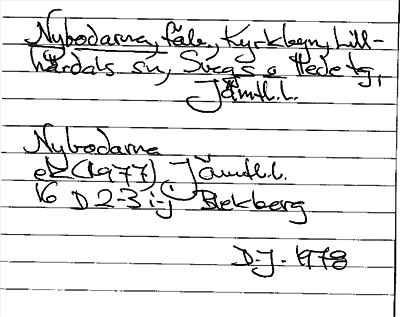 Nybodarna, fäb., Kyrkbyn, Lill-
härdals sn, Svegs o Hede tg,
Jämtl.l.
Nybodarna
ek (1977) Jämtl.l.
16 D 2-3 i-j Blekberg
D.J. 1978